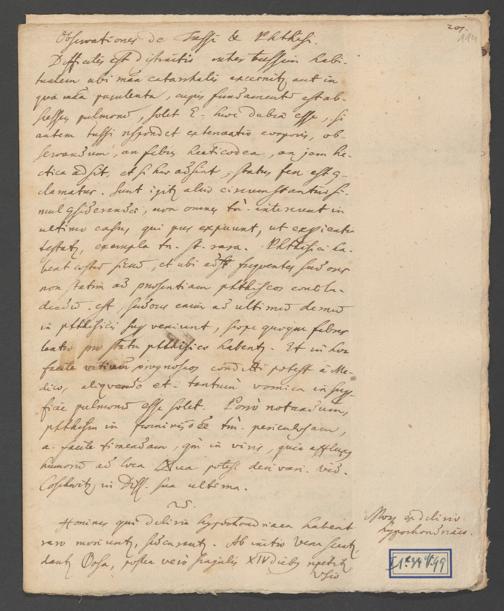 201.
114
Observationes de Tussi & Phthisi.
Difficilis est Distinctio inter tussim habi-
tualem ubi mãa catarrhalis excernitz aut in
qua mãa purulenta, cujus fundamentũ est ab-
scessus pulmonũ, solet E. hinc dubia esse, si
autem tussi respondet extenuatio corporis, ob-
servandum, an febris hecticodea, an jam he-
ctica adsit, et si hæc adsint, status seu est
clamatus. Sunt igitz aliæ circumstantiæ si-
mul considerandæ, non omnes tñ. intereunt in
ultimo casu, qui pus expuunt, ut experientia
testatz, exempla tñ. st. rara. Phthisici ha-
bent et ubi frequentes sudores
non statim ad præsentiam phthiseos conclu-
dendũ est, sudores enim ad ultimũ demũ
in phthisicis superveniunt, sæpe quoque febres
lentæ pro statu phthisico habentz. Et in hoc
facile vitium prognoseos committi potest à Me-
dico, aliquando et. tantum vomica in super-
ficie pulmonũ esse solet. Porro notandum,
phthisin in fœminis esse tm̃. periculosam,
a. facile timendam, qm̃ in viris, quia affluxus
humorũ ad loca alia potest derivari. vid.
Coschwitz in Diss. sua ultima.
Homines qui deliria hypochondriaca habent
raro moriuntz, si curantz. Ab initio Venæ sectz
dantz Dosa, postea vero singulis XIV diebz repetitz
Mors ex delirio
hypochondriaco.